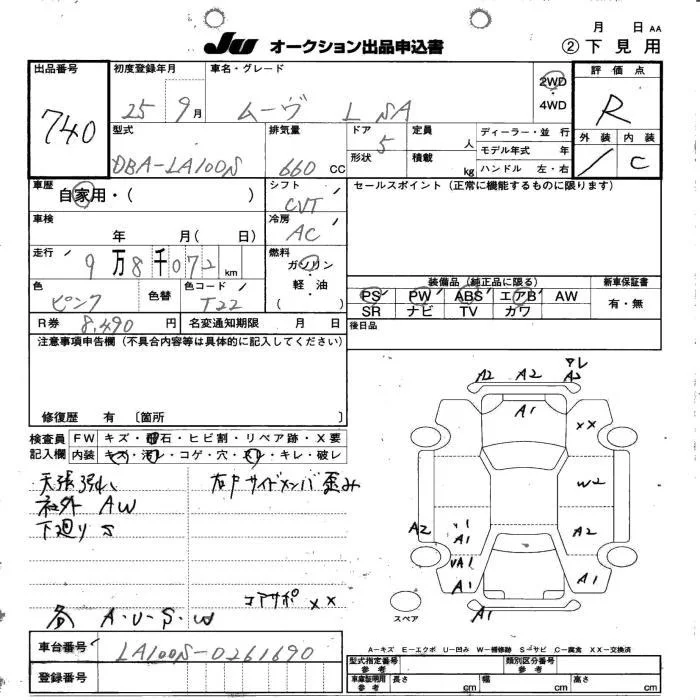 JU オークション出品申込書
月 日 AA
② 下見用
出品番号
740
初度登録年月
25 9月
車名・グレード
ムーヴ L SA
2WD
・
4WD
評価点
R
外装 内装
C
型式
DBA-LA100S
排気量
660 CC
ドア 5
形状
定員 人
積載 kg
ディーラー・並行
モデル年式 年
ハンドル 左・右
車歴
自家用・( )
シフト
CVT
セールスポイント (正常に機能するものに限ります)
車検
年 月( 日)
冷房
AC
走行
9万8千072 km
燃料
ガソリン
・
軽・油
( )
色
ピンク
色替
色コード
T22
装備品 (純正品に限る)
PS PW ABS エアB AW
SR ナビ TV カワ
新車保証書
有・無
R券 8,490 円
名変通知期限 月 日
後日品
注意事項申告欄 (不具合内容等は具体的に記入してください)
修復歴 有 〔箇所 〕
検査員
記入欄
FW キズ・飛石・ヒビ割・リペア跡・X要
内装 キズ・汚レ・コゲ・穴・スレ・キレ・破レ
天張弱い
社外 AW
下廻り S
右Fサイドメンバ歪み
コアサポ XX
各 A・U・S・W
A2 A2 A2
ワレ
A1
XX
W2
A2
A2
A1
UA1
A1
A1
A1
スペア
A-キズ E-エクボ U-凹み W-補修跡 S-サビ C-腐食 XX-交換済
車台番号
LA100S-0261690
登録番号
型式指定番号
参考
類別区分番号
参考
車庫証明用
参考
長さ cm
幅 cm
高さ cm